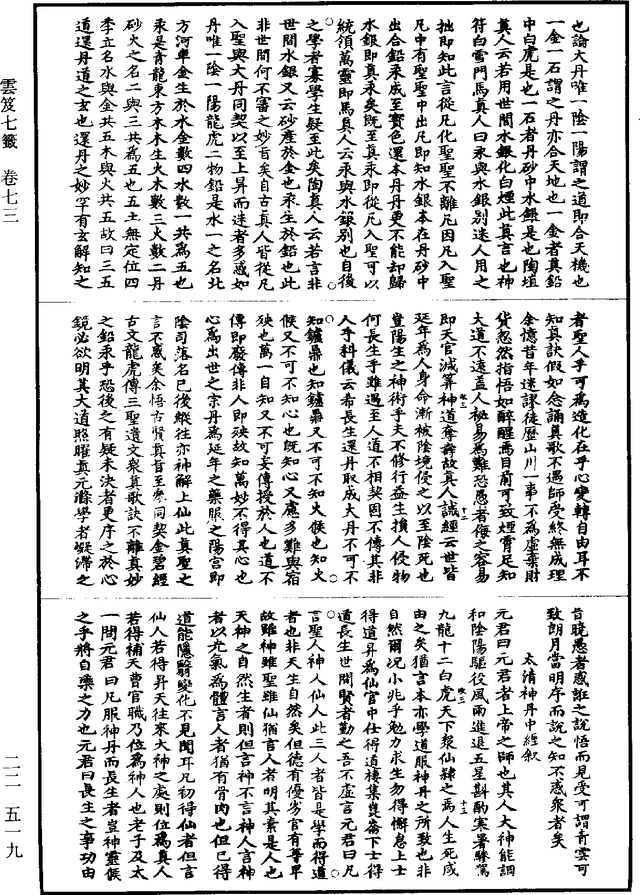 雲笈七籤 卷七三
也論大丹唯一陰一陽謂之道即合天機也
一金一石謂之丹亦合天地也一金者真鉛
中白虎是也一石者丹砂中水銀是也陶埴
真人云若用世間水銀化白煙此真言也神
符白雪門馬真人曰汞與水銀別迷人用之
拙即知此言從凡化聖聖不離凡因凡入聖
凡中有聖聖中出凡即知水銀本在丹砂中
出合鉛汞成至寶色還本丹丹更不能却歸
水銀即真汞矣既至真汞即從凡入聖可以
統領萬靈即馬真人云汞與水銀別也自後
之學者寡學生疑至此矣陶真人云若言非
世間水銀又云砂產於金也汞生於鉛也此
非世間何不審之妙旨矣自古真人皆從凡
入聖與大丹同契以至上昇而迷者多惑如
丹唯一陰一陽龍虎二物鉛是水一之名北
方河車金生於水金數四水數一共為五也
汞是青龍東方木木生火木數三火數二丹
砂火之名二與三共為五也五土無定位四
季立名水與金共五木與火共五故曰三五
道還丹道之玄也還丹之妙罕有玄解知之
者聖人乎可為造化在乎心變轉自由耳不
知真訣假如念誦真歌不遇師受終無成理
余憶昔年迷謬徒歷山川一事不為虛棄財
貨忽然指悟如醉醒焉目前可致煙霄足知
大道不遠蓋人秘易為難恐愚者侮之容易
即天官減筭神道奪壽故真人誡經云世皆
延年為人身命漸被陰境侵之以至陰死也
豈陽生之神術乎夫不修行益生損人侵物
何長生乎雖遇至人道不相契因不傳其非
人乎科儀云希長生還丹取成大丹不可不
知鑪鼎也知鑪鼎又不可不知火候也知火
候又不可不知心也既知心又慮多難與宿
殃也萬一自知又不可妄傳授於人也道不
傳即廢傳非人即殃故知萬妙不得其心也
心為出世之宗丹為延年之藥服之陽宮即
陰司落名已後縱往亦神解上仙此真聖之
言不惑矣余悟古賢真旨至參同契金碧經
古文龍虎傳三聖遺文衆真歌訣不離真妙
之鉛汞乎恐後之有疑未決者更序之於心
鏡必欲明其大道照曜真元滌學者凝滯之
昔晚愚者惑誑之說悟而見受可謂青雲可
致朗月當明序而說之知不惑衆者矣
太清神丹中經敘
元君曰元君者上帝之師也其人大神能調
和陰陽驅役風雨進退五星斟酌寒署驂駕
九龍十二白虎天下衆仙隸之為人生死咸
由之矣猶言本亦學道服神丹之所致也非
自然爾况小兆乎勉力求生勿得懈怠上士
得道昇為仙官中仕得道棲集崑崙下士得
道長生世間賢者勤之吾不虛言元君曰凡
言聖人神人仙人此三人者皆是學而得道
者也非天生自然矣但德有優劣官有尊卑
故雖神雖聖雖仙猶言人者明其素是人也
天神之自然生者則但言神不言神人言神
者以光氣為體言人者猶有骨肉也但已得
道能隱翳變化不見聞耳凡初得仙者但言
仙人若得昇天往來大神之處則位為真人
若得補天曹官職乃位為神人也老子及太
一問元君曰凡服神丹而長生者豈神靈候
之乎將自藥之力也元君曰長生之事功由
二二—五一九